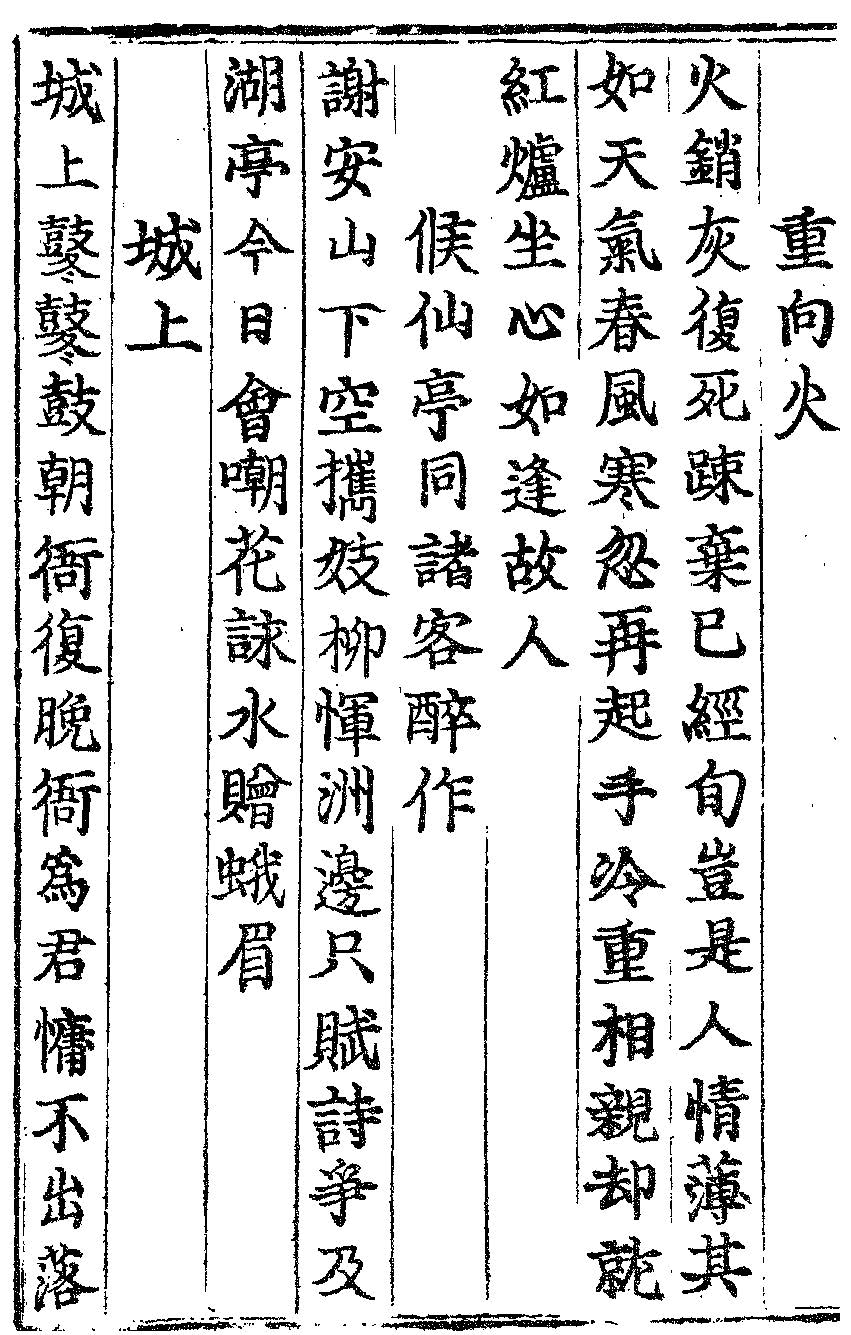 重向火
火銷灰復死踈棄已經旬豈是人情薄其
如天氣春風寒忽再起手冷重相親却就
紅爐坐心如逢故人
候仙亭同諸客醉作
謝安山下空攜妓柳惲洲邊只賦詩爭及
湖亭今日會嘲花詠水贈蛾眉
城上
城上鼕鼕鼓朝衙復晚衙爲君慵不出落